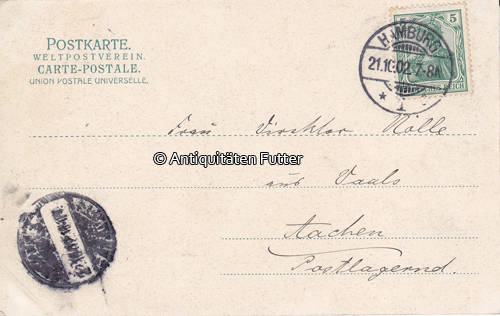 POSTKARTE.
WELTPOSTVEREIN.
CARTE-POSTALE.
UNION POSTALE UNIVERSELLE.
5
HAMBURG
21.10.02.7-8A
* 1 *
REICH
Frau Direktor Nolle
© Antiquitäten Futter
aus Vaals
Aachen
Postlagernd.